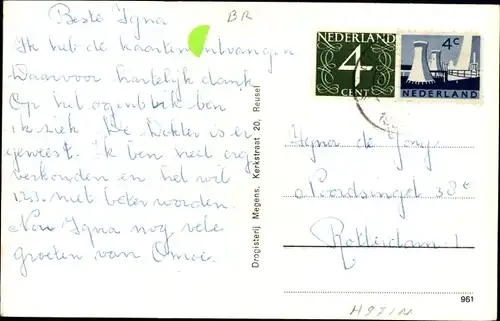 Beste Igna
BR
Ik heb de kaarten ontvangen
Waarvoor hartelijk dank
Op het ogenblik ben
ik ziek. De Dokter is er
geweest. Ik ben heel erg
verkouden en het wil
niet beter worden.
Nou Igna nog vele
groeten van Omoe.
Drogisterij Megens, Kerkstraat 20, Reusel
NEDERLAND
4
CENT
4c
NEDERLAND
de Jong
Noordsingel 38c
Rotterdam 1
961